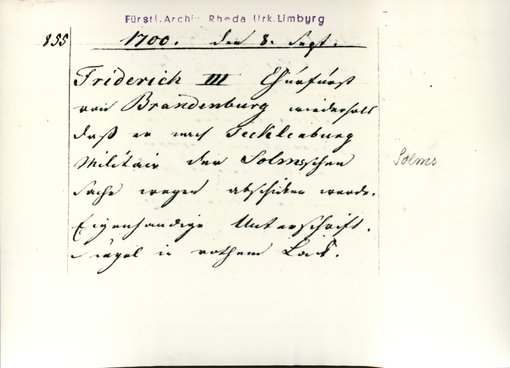 Fürstl. Archiv Rheda Urk. Limburg
835 1700. den 8. Sept.
Friderich III Churfürst
von Brandenburg wiederholt
daß er nach Tecklenburg
Militair der Solmsschen
Solms
Sache wegen abschicken werde.
Eigenhändige Unterschrift.
Siegel in rothem Lack.